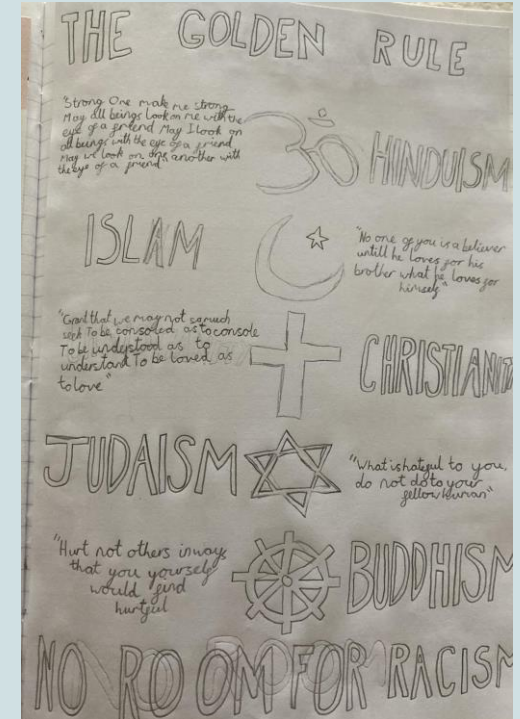 THE GOLDEN RULE
"Strong One make me strong
May all beings look on me with the
eye of a friend May I look on
all beings with the eye of a friend
May we look on one another with
the eye of a friend"
HINDUISM
ISLAM
"No one of you is a believer
untill he loves for his
brother what he loves for
himself"
"Grant that we may not so much
seek To be consoled as to console
To be understood as to
understand To be loved as
to love"
CHRISTIANITY
JUDAISM
"What is hateful to you,
do not do to your
fellow human"
"Hurt not others in ways
that you yourself
would find
hurtful
BUDDHISM
NO ROOM FOR RACISM